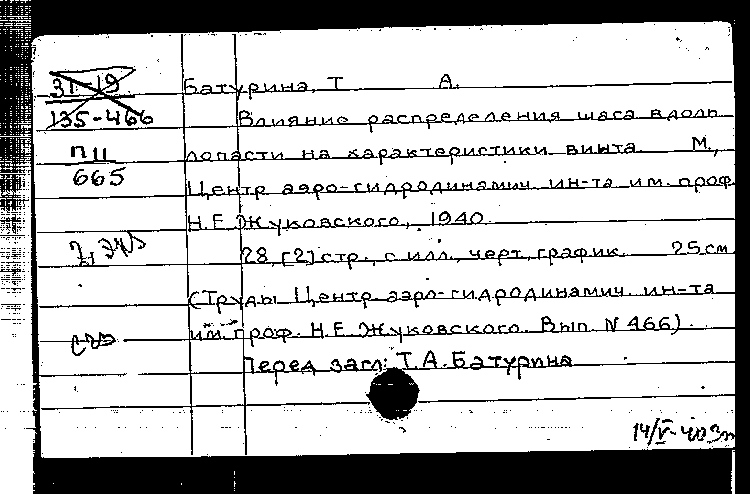 31-19
135-466
П11
665
Батурина, Т А.
Влияние распределения шага вдоль
лопасти на характеристики винта М,
Центр аэро-гидродинамич. ин-та им. проф.
Н.Е.Жуковского, 1940.
28, [2] стр., с илл., черт, график. 25 см
(Труды Центр. аэро-гидродинамич. ин-та
им. проф. Н.Е.Жуковского. Вып. N 466).
Перед загл: Т.А.Батурина
14/V-40